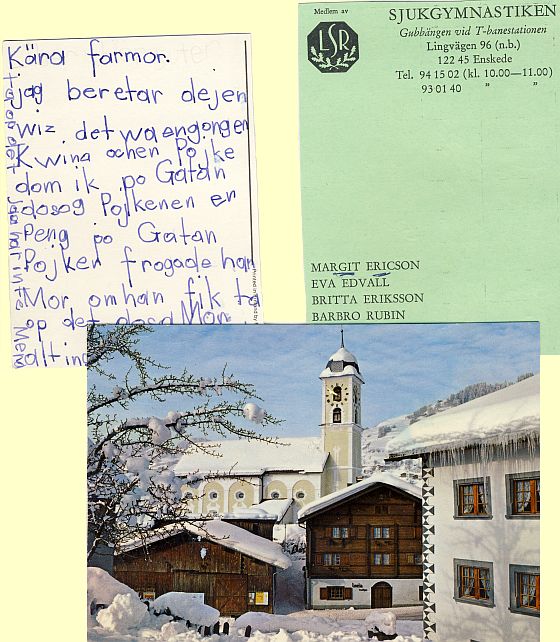 Kära farmor.
jag beretar dejen
wiz. det wa engongen
Kwina ochen Pojke
dom ik po Gatan
dosog Pojkenen en
Peng po Gatan
Pojken frogade han
Mor om han fik ta
op det dosa Mor
alting
Medlem av
LSR
SJUKGYMNASTIKEN
Gubbängen vid T-banestationen
Lingvägen 96 (n.b.)
122 45 Enskede
Tel. 94 15 02 (kl. 10.00—11.00)
93 01 40 " "
MARGIT ERICSON
EVA EDVALL
BRITTA ERIKSSON
BARBRO RUBIN